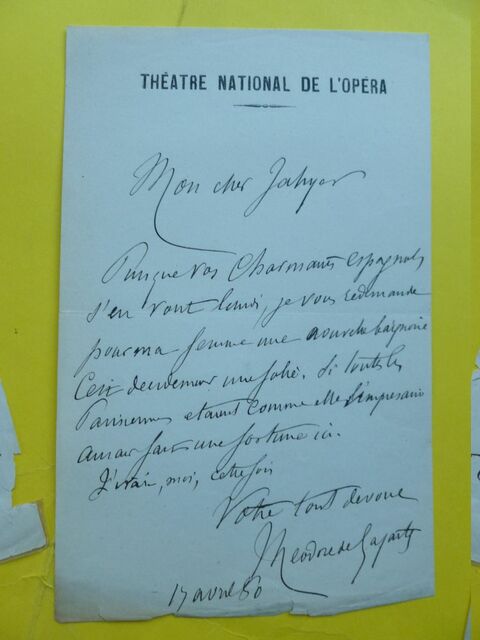 THÉATRE NATIONAL DE L'OPÉRA
Mon cher Jahyer
Puisque vos charmants espagnols
s'en vont lundi, je vous redemande
pour ma femme une nouvelle baignoire
Ceci devient une folie. Si toutes les
Parisiennes etaient comme elle l'impresario
aurait fait une fortune ici.
J'irai, moi, cette fois
Votre tout devoué
Theodore de Lajarte
17 avril 80